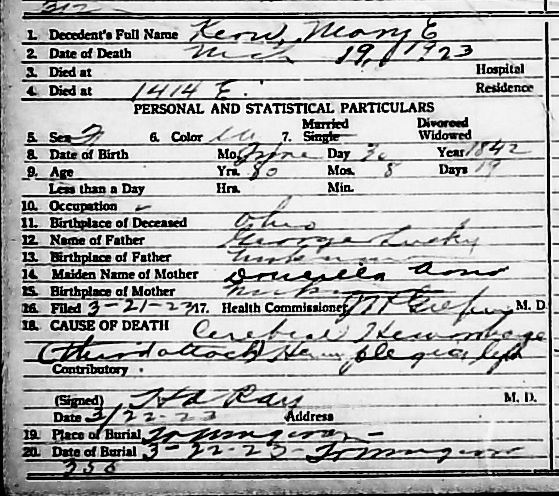 312
1. Decedent's Full Name Kerr, Mary E
2. Date of Death Mch 19, 1923
3. Died at Hospital
4. Died at 1414 E. Residence
PERSONAL AND STATISTICAL PARTICULARS
5. Sex F 6. Color W 7. Married Single Divorced Widowed
8. Date of Birth Mo. June Day 30 Year 1842
9. Age Yrs. 80 Mos. 8 Days 19
Less than a Day Hrs. Min.
10. Occupation
11. Birthplace of Deceased Ohio
12. Name of Father George Lucky
13. Birthplace of Father Unknown
14. Maiden Name of Mother
15. Birthplace of Mother
16. Filed 3-21-23 17. Health Commissioner M. D.
18. CAUSE OF DEATH Cerebral Hemorrhage
(third attack) Hemiplegia left
Contributory
(Signed) Ray M. D.
Date 3/22-23 Address
19. Place of Burial
20. Date of Burial 3-22-23-
356